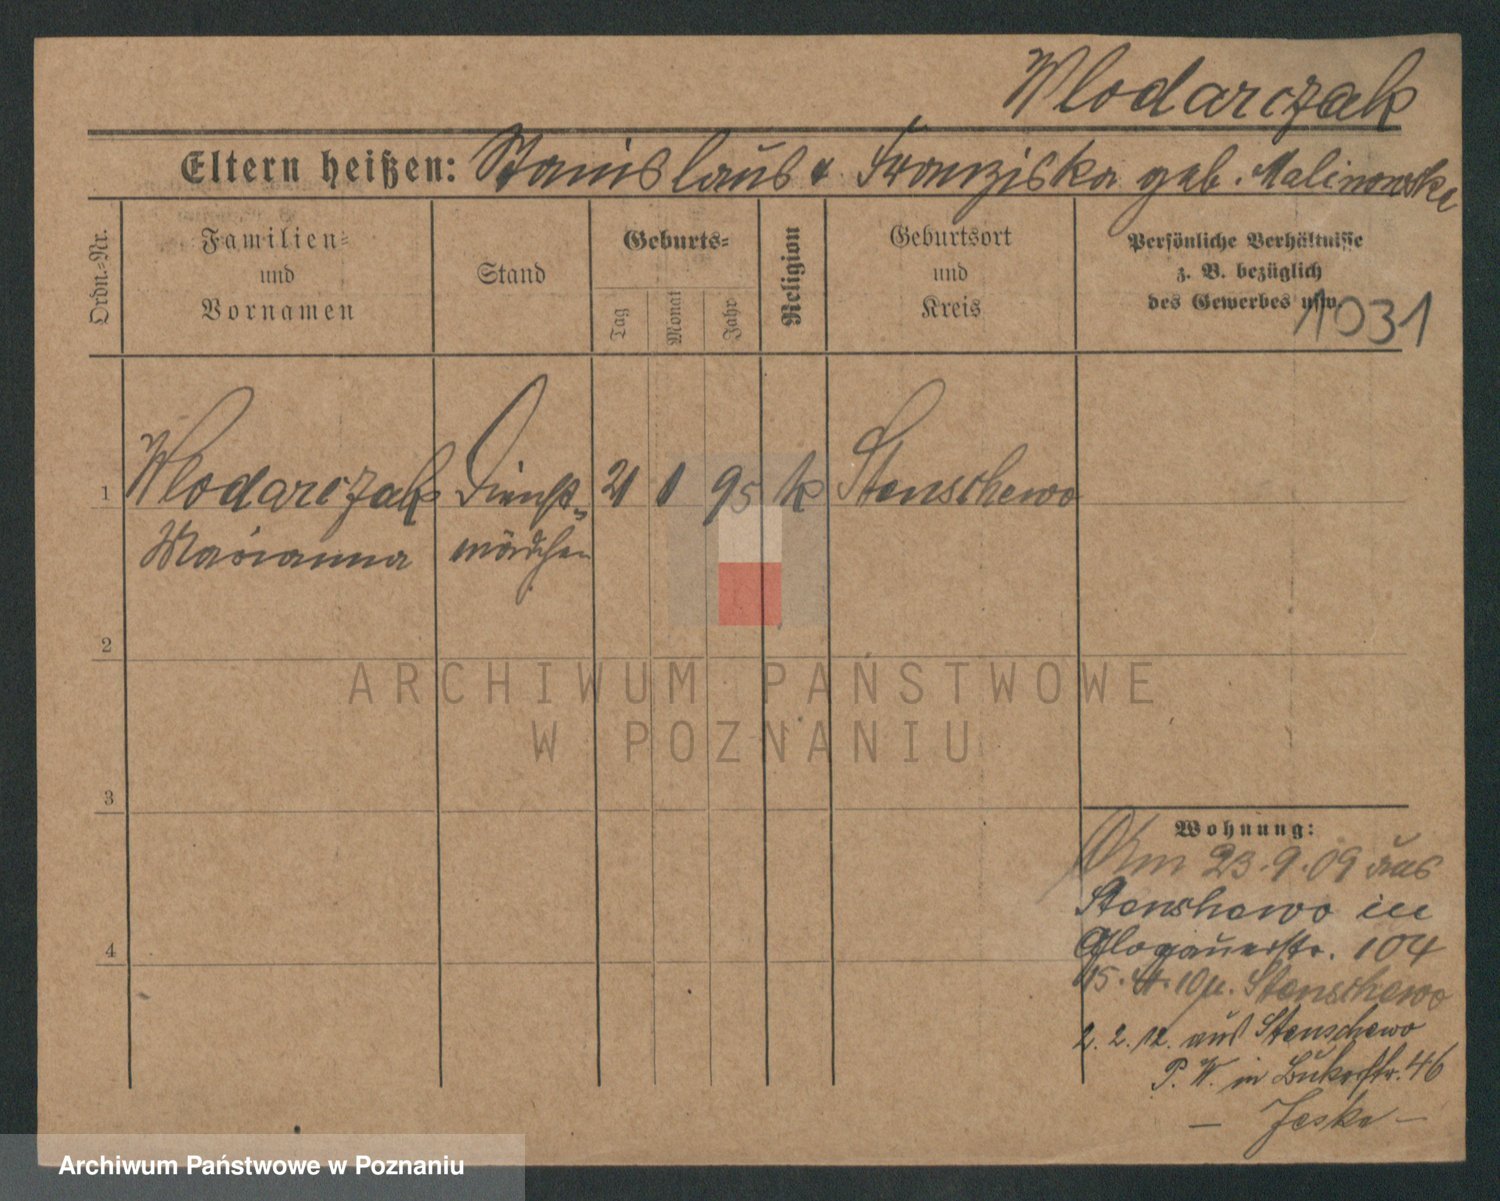 Wlodarczak
Eltern heißen: Stanislaus & Franziska geb. Malinowska
Ordn.-Nr.
Familien-
und
Vornamen
Stand
Geburts-
Tag
Monat
Jahr
Religion
Geburtsort
und
Kreis
Persönliche Verhältnisse
z. B. bezüglich
des Gewerbes usw.
1031
1 Wlodarczak Dienst- 21 1 95 k Stenschewo
Marianna mädchen
2
3
4
Wohnung:
23.9.09 aus
Stenshewo in
Glogauerstr. 104
15. 4. 10 Stenschewo
2. 2. 12. aus Stenschewo
P. W. in Bukerstr. 46
– Jeske –
ARCHIWUM PAŃSTWOWE
W POZNANIU
Archiwum Państwowe w Poznaniu